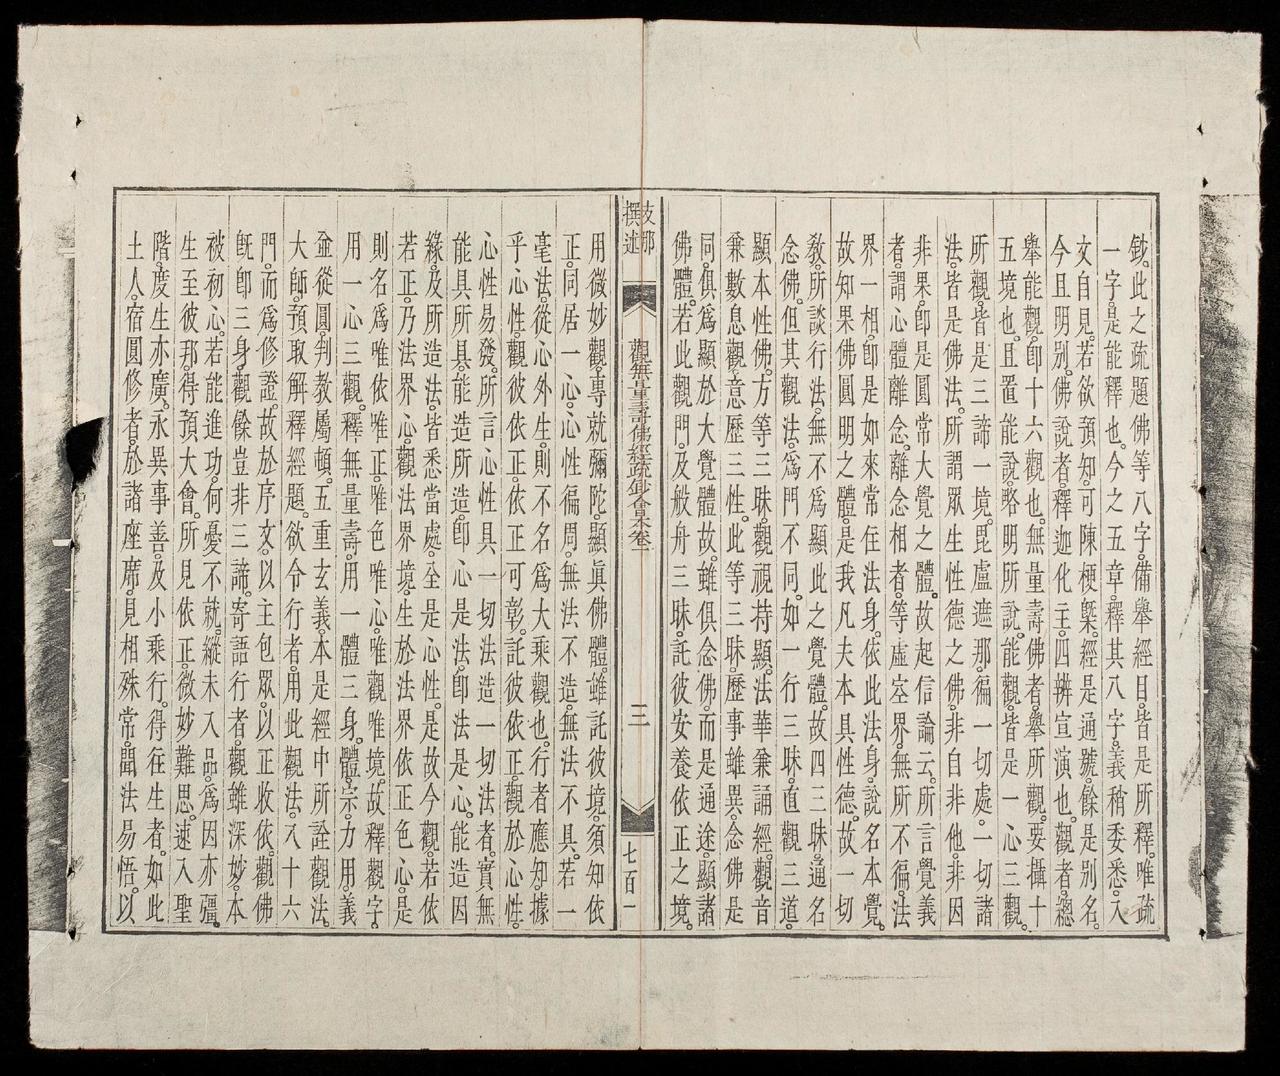 鈔。此之疏題佛等八字。備舉經目。皆是所釋。唯疏
一字。是能釋也。今之五章。釋其八字。義稍委悉。入
文自見。若欲預知。可陳梗槩。經是通號。餘是別名。
今且明別。佛說者。釋迦化主。四辨宣演也。觀者。總
舉能觀。卽十六觀也。無量壽佛者。舉所觀。要攝十
五境也。且置能說。略明所說。能觀。皆是一心三觀。
所觀。皆是三諦一境。毘盧遮那。徧一切處。一切諸
法。皆是佛法。所謂眾生性德之佛。非自非他。非因
非果。卽是圓常大覺之體。故起信論云。所言覺義
者。謂心體離念。離念相者。等虛空界。無所不徧。法
界一相。卽是如來常住法身。依此法身。說名本覺。
故知果佛圓明之體。是我凡夫本具性德。故一切
敎。所談行法。無不爲顯此之覺體。故四三昧。通名
念佛。但其觀法。爲門不同。如一行三昧。直觀三道。
顯本性佛。方等三昧。觀視持顯。法華兼誦經。觀音
兼數息。觀意歷三性。此等三昧。歷事雖異。念佛是
同。俱爲顯於大覺體故。雖俱念佛。而是通途。顯諸
佛體。若此觀門。及般舟三昧。託彼安養依正之境。
支那
撰述
觀無量壽佛經疏鈔會本卷一
三
七百一
用微妙觀。專就彌陀。顯眞佛體。雖託彼境。須知依
正。同居一心。心性徧周。無法不造。無法不具。若一
毫法。從心外生。則不名爲大乘觀也。行者應知。據
乎心性。觀彼依正。依正可彰。託彼依正。觀於心性。
心性易發。所言心性具一切法造一切法者。實無
能具所具。能造所造。卽心是法。卽法是心。能造因
緣。及所造法。皆悉當處。全是心性。是故今觀。若依
若正。乃法界心。觀法界境。生於法界依正色心。是
則名爲唯依唯正。唯色唯心。唯觀唯境。故釋觀字。
用一心三觀。釋無量壽。用一體三身。體。宗。力用。義
並從圓。判教屬頓。五重玄義。本是經中所詮觀法。
大師預取解釋經題。欲令行者。用此觀法。入十六
門。而爲修證。故於序文。以主包眾。以正收依。觀佛
旣卽三身。觀餘豈非三諦。寄語行者。觀雖深妙。本
被初心。若能進功。何憂不就。縱未入品。爲因亦彊。
生至彼邦。得預大會。所見依正。微妙難思。速入聖
階。度生亦廣。永異事善。及小乘行。得往生者。如此
土人。宿圓修者。於諸座席。見相殊常。聞法易悟。以